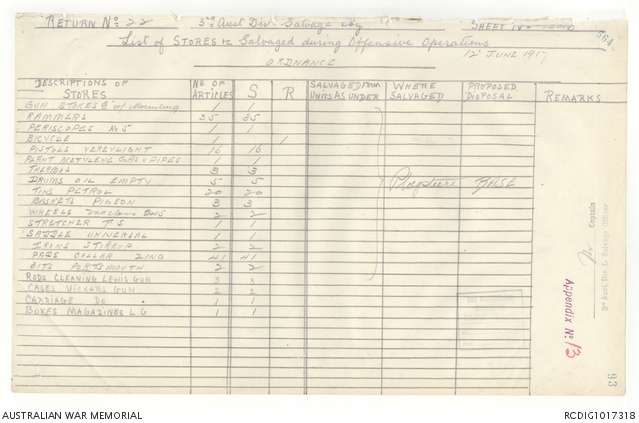 RETURN No 22 3rd Aust Div. Salvage Coy SHEET No
List of STORES &c Salvaged during Offensive Operations
12 JUNE 1917
ORDNANCE
DESCRIPTIONS OF STORES No OF ARTICLES S R SALVAGED FROM UNITS AS UNDER WHERE SALVAGED PROPOSED DISPOSAL REMARKS
GUN STOKES 3" 1 1
RAMMERS 35 35
PERISCOPES No 5 1 1
BICYCLE 1 1
PISTOLS VEREYLIGHT 16 16
PLANT ACETYLENE 1 1
THERMOS 3 3
DRUMS OIL EMPTY 5 5
TINS PETROL 20 20
BASKETS PIGEON 3 3
WHEELS 2 2
STRETCHER 1 1
SADDLE UNIVERSAL 1 1
IRONS STIRRUP 2 2
PADS COLLAR ZINC 41 41
BITS PORTSMOUTH 2 2
RODS CLEANING LEWIS GUN 3 3
CASES VICKERS GUN 2 2
CARRIAGE DO 1 1
BOXES MAGAZINES L G 1 1
Captain
3rd Aust. Div. Salvage Officer
Appendix No 13
93
AUSTRALIAN WAR MEMORIAL RCDIG1017318